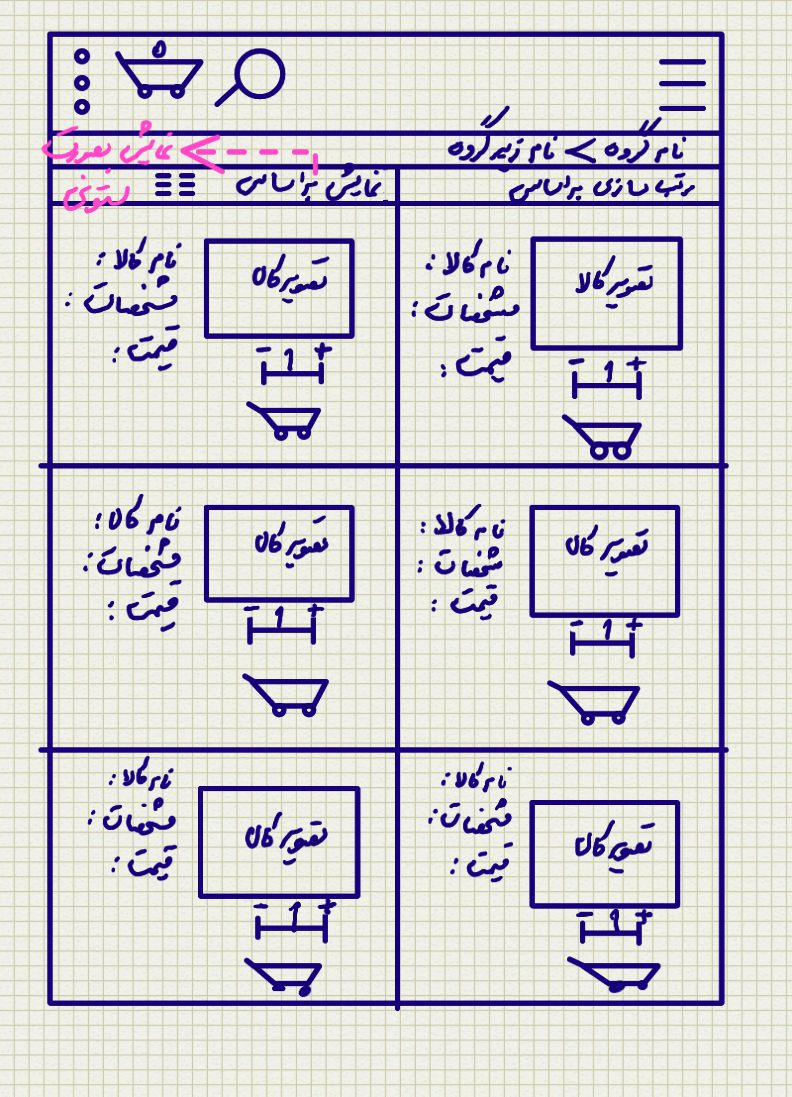 0
نام گروه > نام زیرگروه
نمایش بصورت
ستونی
مرتب سازی براساس
نمایش براساس
تصویر کالا
نام کالا :
مشخصات :
قیمت :
- 1 +
تصویر کالا
نام کالا :
مشخصات :
قیمت :
- 1 +
تصویر کالا
نام کالا :
مشخصات :
قیمت :
- 1 +
تصویر کالا
نام کالا :
مشخصات :
قیمت :
- 1 +
تصویر کالا
نام کالا :
مشخصات :
قیمت :
- 1 +
تصویر کالا
نام کالا :
مشخصات :
قیمت :
- 1 +